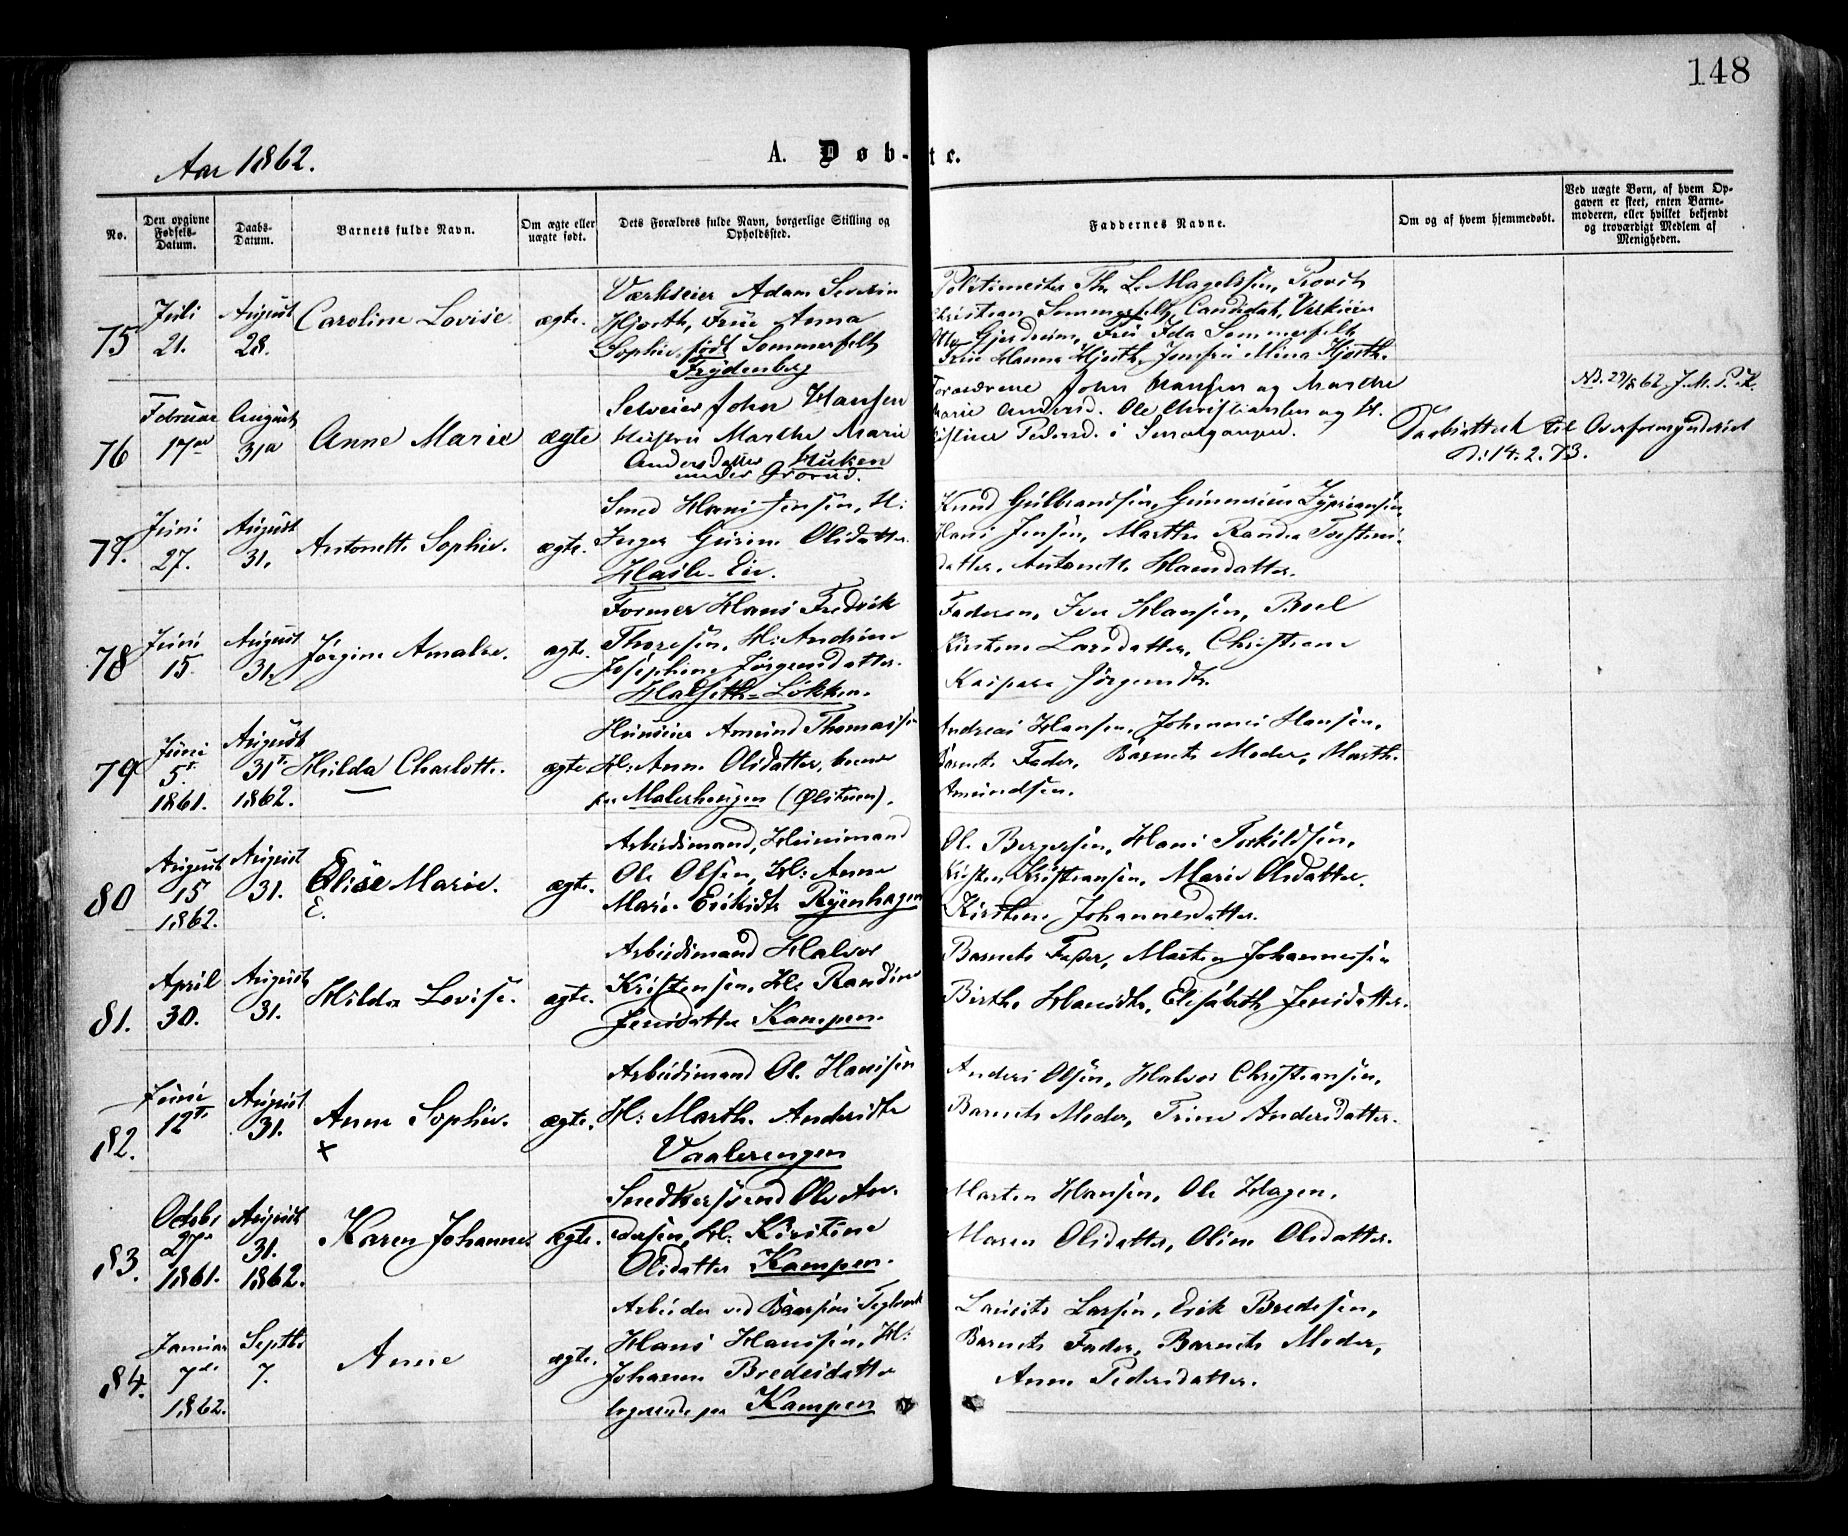 148
Aar 1862.
A. Døb-te.
No.
Den opgivne Fødsels-Datum.
Daabs-Datum.
Barnets fulde Navn.
Om ægte eller uægte født.
Dets Forældres fulde Navn, borgerlige Stilling og Opholdssted.
Faddernes Navne.
Om og af hvem hjemmedøbt.
Ved uægte Børn, af hvem Op-
gaven er skeet, enten Barne-
moderen, eller hvilket bekjendt
og troværdigt Medlem af
Menigheden.
75
Juli
21.
August
28.
Caroline Lovise
ægte.
Værkseier Adam Severin
Hjorth, Frue Anna
Sophie, født Sommerfelt
Frydenberg
Politimester Th. L. Magelssen, Provst
Christian Sommerfelt, Candidat, Værkseier
Gjerdrum, Fru Ida Sommerfelt
Frue Hanna Hjorth, Jomfru Mina Hjorth.
76
Februar
17de
August
31
Anne Marie
ægte
Selveier John Hansen
Hustru Marthe Marie
Andersdatter Huken
under Grorud.
Forældrene John Hansen og Marthe
Marie Andersd. Ole Christiansen og H.
Kistine Pedersd. i
NB. 29/8 62. J. M. P. K.
til Overformynderiet
D. 14. 2. 73.
77.
Juni
27.
August
31.
Antonette Sophie.
ægte.
Smed Hans Jensen, H:
Inger Gurine Olsdatter.
Hasle-Eie.
Knud Gulbrandsen, Gunnerius Zypriansen,
Hans Jensen, Marthe Randea Torstens-
datter, Antonette Hansdatter.
78
Juni
15.
August
31.
Jørgine Amalie.
ægte.
Former Hans Fredrik
Thoresen, H: Andrine
Josephine Jørgensdatter.
Halseth-Løkken.
Faderen, Iver Hansen, Boel
Kirstine Larsdatter, Christiane
Kaspara Jørgensdtr.
79
Juni
5te
1861.
August
31te
1862.
Hilda Charlotte.
ægte
Huuseier Amund Thomassen
H: Anne Olsdatter, boene
paa Malerhougen (Ølstuen).
Andreas Hansen, Johannes Hansen,
Barnets Fader, Barnets Moder, Marth.
Amundsen.
80
August
15
1862.
August
31.
Elise Marie.
E.
ægte.
Arbeidsmand, Huusmand
Ole Olsen, H: Anne
Marie Eriksdtr Ryenhagen
Ole Bergersen, Hans Torkildsen,
Kristen Kristiansen, Marie Olsdatter.
Kirstine Johannesdatter.
81.
April
30.
August
31.
Hilda Lovise.
ægte.
Arbeidsmand Halvor
Kristensen, H: Randine
Jensdatter Kampen.
Barnets Fader, Martin Johannessen
Birthe Hansdtr, Elisabeth Jensdatter.
82.
Juni
12te
August
31.
Anne Sophie.
x
ægte.
Arbeidsmand Ole Hansen
H: Marthe Andersdtr
Vaalerengen
Anders Olsen, Halvor Christiansen,
Barnets Moder, Trine Andersdatter.
83.
Octobr
27de
1861.
August
31.
1862.
Karen Johanne
ægte.
Snedkersvend Ole An-
dersen, H: Kirstine
Olsdatter Kampen.
Martin Hansen, Ole Hagen,
Maren Olsdatter, Oline Olsdatter.
84.
Januar
7de
1862.
Septbr
7.
Anne
ægte.
Arbeider ved Teglværk
Hans Hanssen, H:
Johanne Bredesdatter
logerende paa Kampen
Lauritz Larsen, Erik Bredesen,
Barnets Fader, Barnets Moder,
Anne Pedersdatter.